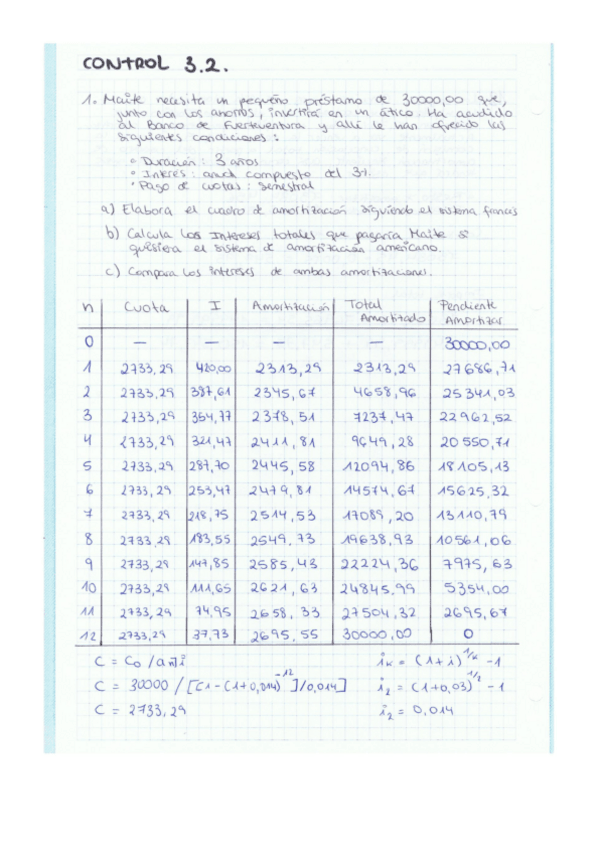 CONTROL 3.2.
1. Maite necesita un pequeño préstamo de 30000,00 que,
junto con los ahorros, invertirá en un ático. Ha acudido
al Banco de Fuerteventura y allí le han ofrecido las
siguientes condiciones:
◦ Duración: 3 años
◦ Interes: anual compuesto del 3%
◦ Pago de cuotas: semestral
a) Elabora el cuadro de amortización siguiendo el sistema francés
b) Calcula los Intereses totales que pagaría Maite si
quisiera el sistema de amortización americano.
c) Compara los intereses de ambas amortizaciones.
n Cuota I Amortización Total Amortizado Pendiente Amortizar
0 — — — — 30000,00
1 2733,29 420,00 2313,29 2313,29 27686,71
2 2733,29 387,61 2345,67 4658,96 25341,03
3 2733,29 354,77 2378,51 7237,47 22962,52
4 2733,29 321,47 2411,81 9649,28 20550,71
5 2733,29 287,70 2445,58 12094,86 18105,13
6 2733,29 253,47 2479,81 14574,67 15625,32
7 2733,29 218,75 2514,53 17089,20 13110,79
8 2733,29 183,55 2549,73 19638,93 10561,06
9 2733,29 147,85 2585,43 22224,36 7975,63
10 2733,29 111,65 2621,63 24845,99 5354,00
11 2733,29 74,95 2658,33 27504,32 2695,67
12 2733,29 37,73 2695,55 30000,00 0
C = Co / an̅|i iₖ = (1+i)^1/k -1
C = 30000 / [[1-(1+0,014)^-12]/0,014] i₂ = (1+0,03)^1/2 -1
C = 2733,29 i₂ = 0,014